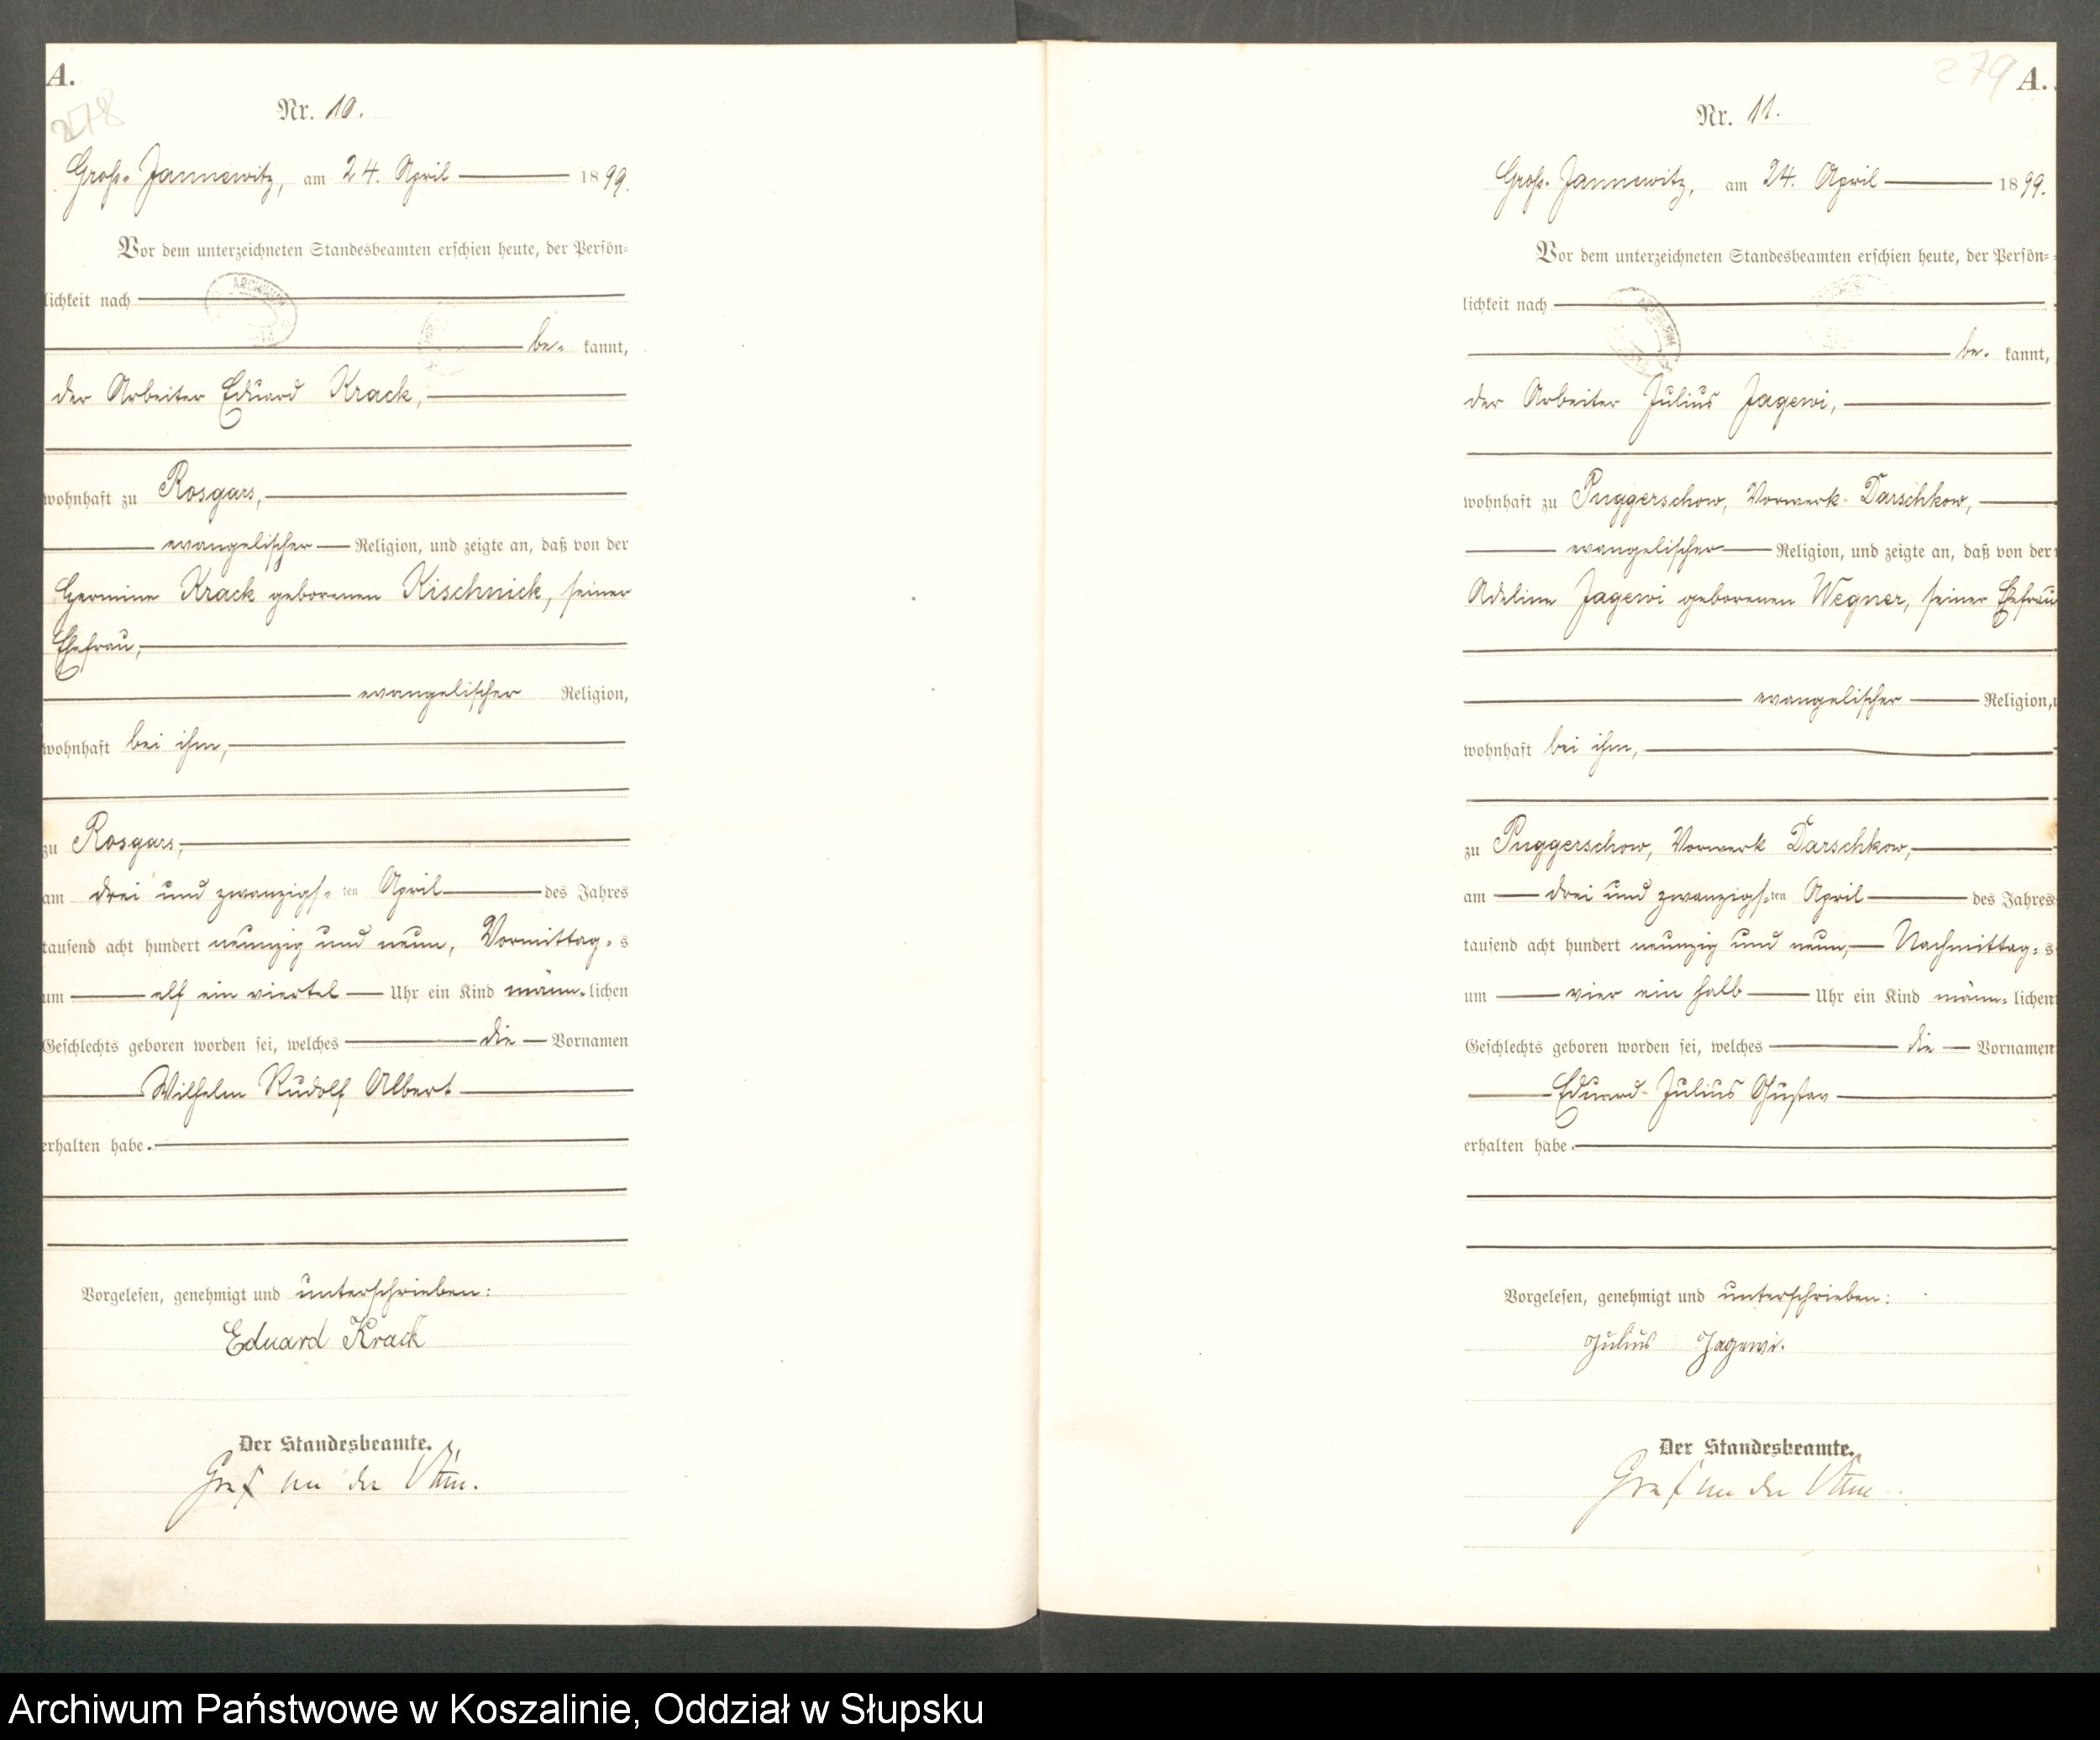 A.
278
Nr. 10.
Groß-Jannewitz, am 24. April 1899.
Vor dem unterzeichneten Standesbeamten erschien heute, der Persön-
lichkeit nach
be- kannt,
der Arbeiter Eduard Krack,
wohnhaft zu Rosgars,
evangelischer Religion, und zeigte an, daß von der
Hermine Krack geborenen Kischnick, seiner
Ehefrau,
evangelischer Religion,
wohnhaft bei ihm,
zu Rosgars,
am drei und zwanzigs-ten April des Jahres
tausend acht hundert neunzig und neun, Vormittag-s
um elf ein viertel Uhr ein Kind männ-lichen
Geschlechts geboren worden sei, welches die Vornamen
Wilhelm Rudolf Albert
erhalten habe.
Vorgelesen, genehmigt und unterschrieben:
Eduard Krack
Der Standesbeamte.
Graf
279
A.
Nr. 11.
Groß-Jannewitz, am 24. April 1899.
Vor dem unterzeichneten Standesbeamten erschien heute, der Persön-
lichkeit nach
be- kannt,
der Arbeiter Julius Jagewi,
wohnhaft zu Puggerschow, Vorwerk Darschkow,
evangelischer Religion, und zeigte an, daß von der
Adeline Jagewi geborenen Wegner, seiner Ehefrau
evangelischer Religion,
wohnhaft bei ihm,
zu Puggerschow, Vorwerk Darschkow,
am drei und zwanzigs-ten April des Jahres
tausend acht hundert neunzig und neun, Nachmittag-s
um vier ein halb Uhr ein Kind männ-lichen
Geschlechts geboren worden sei, welches die Vornamen
Eduard Julius Gustav
erhalten habe.
Vorgelesen, genehmigt und unterschrieben:
Julius Jagewi.
Der Standesbeamte.
Graf
Archiwum Państwowe w Koszalinie, Oddział w Słupsku